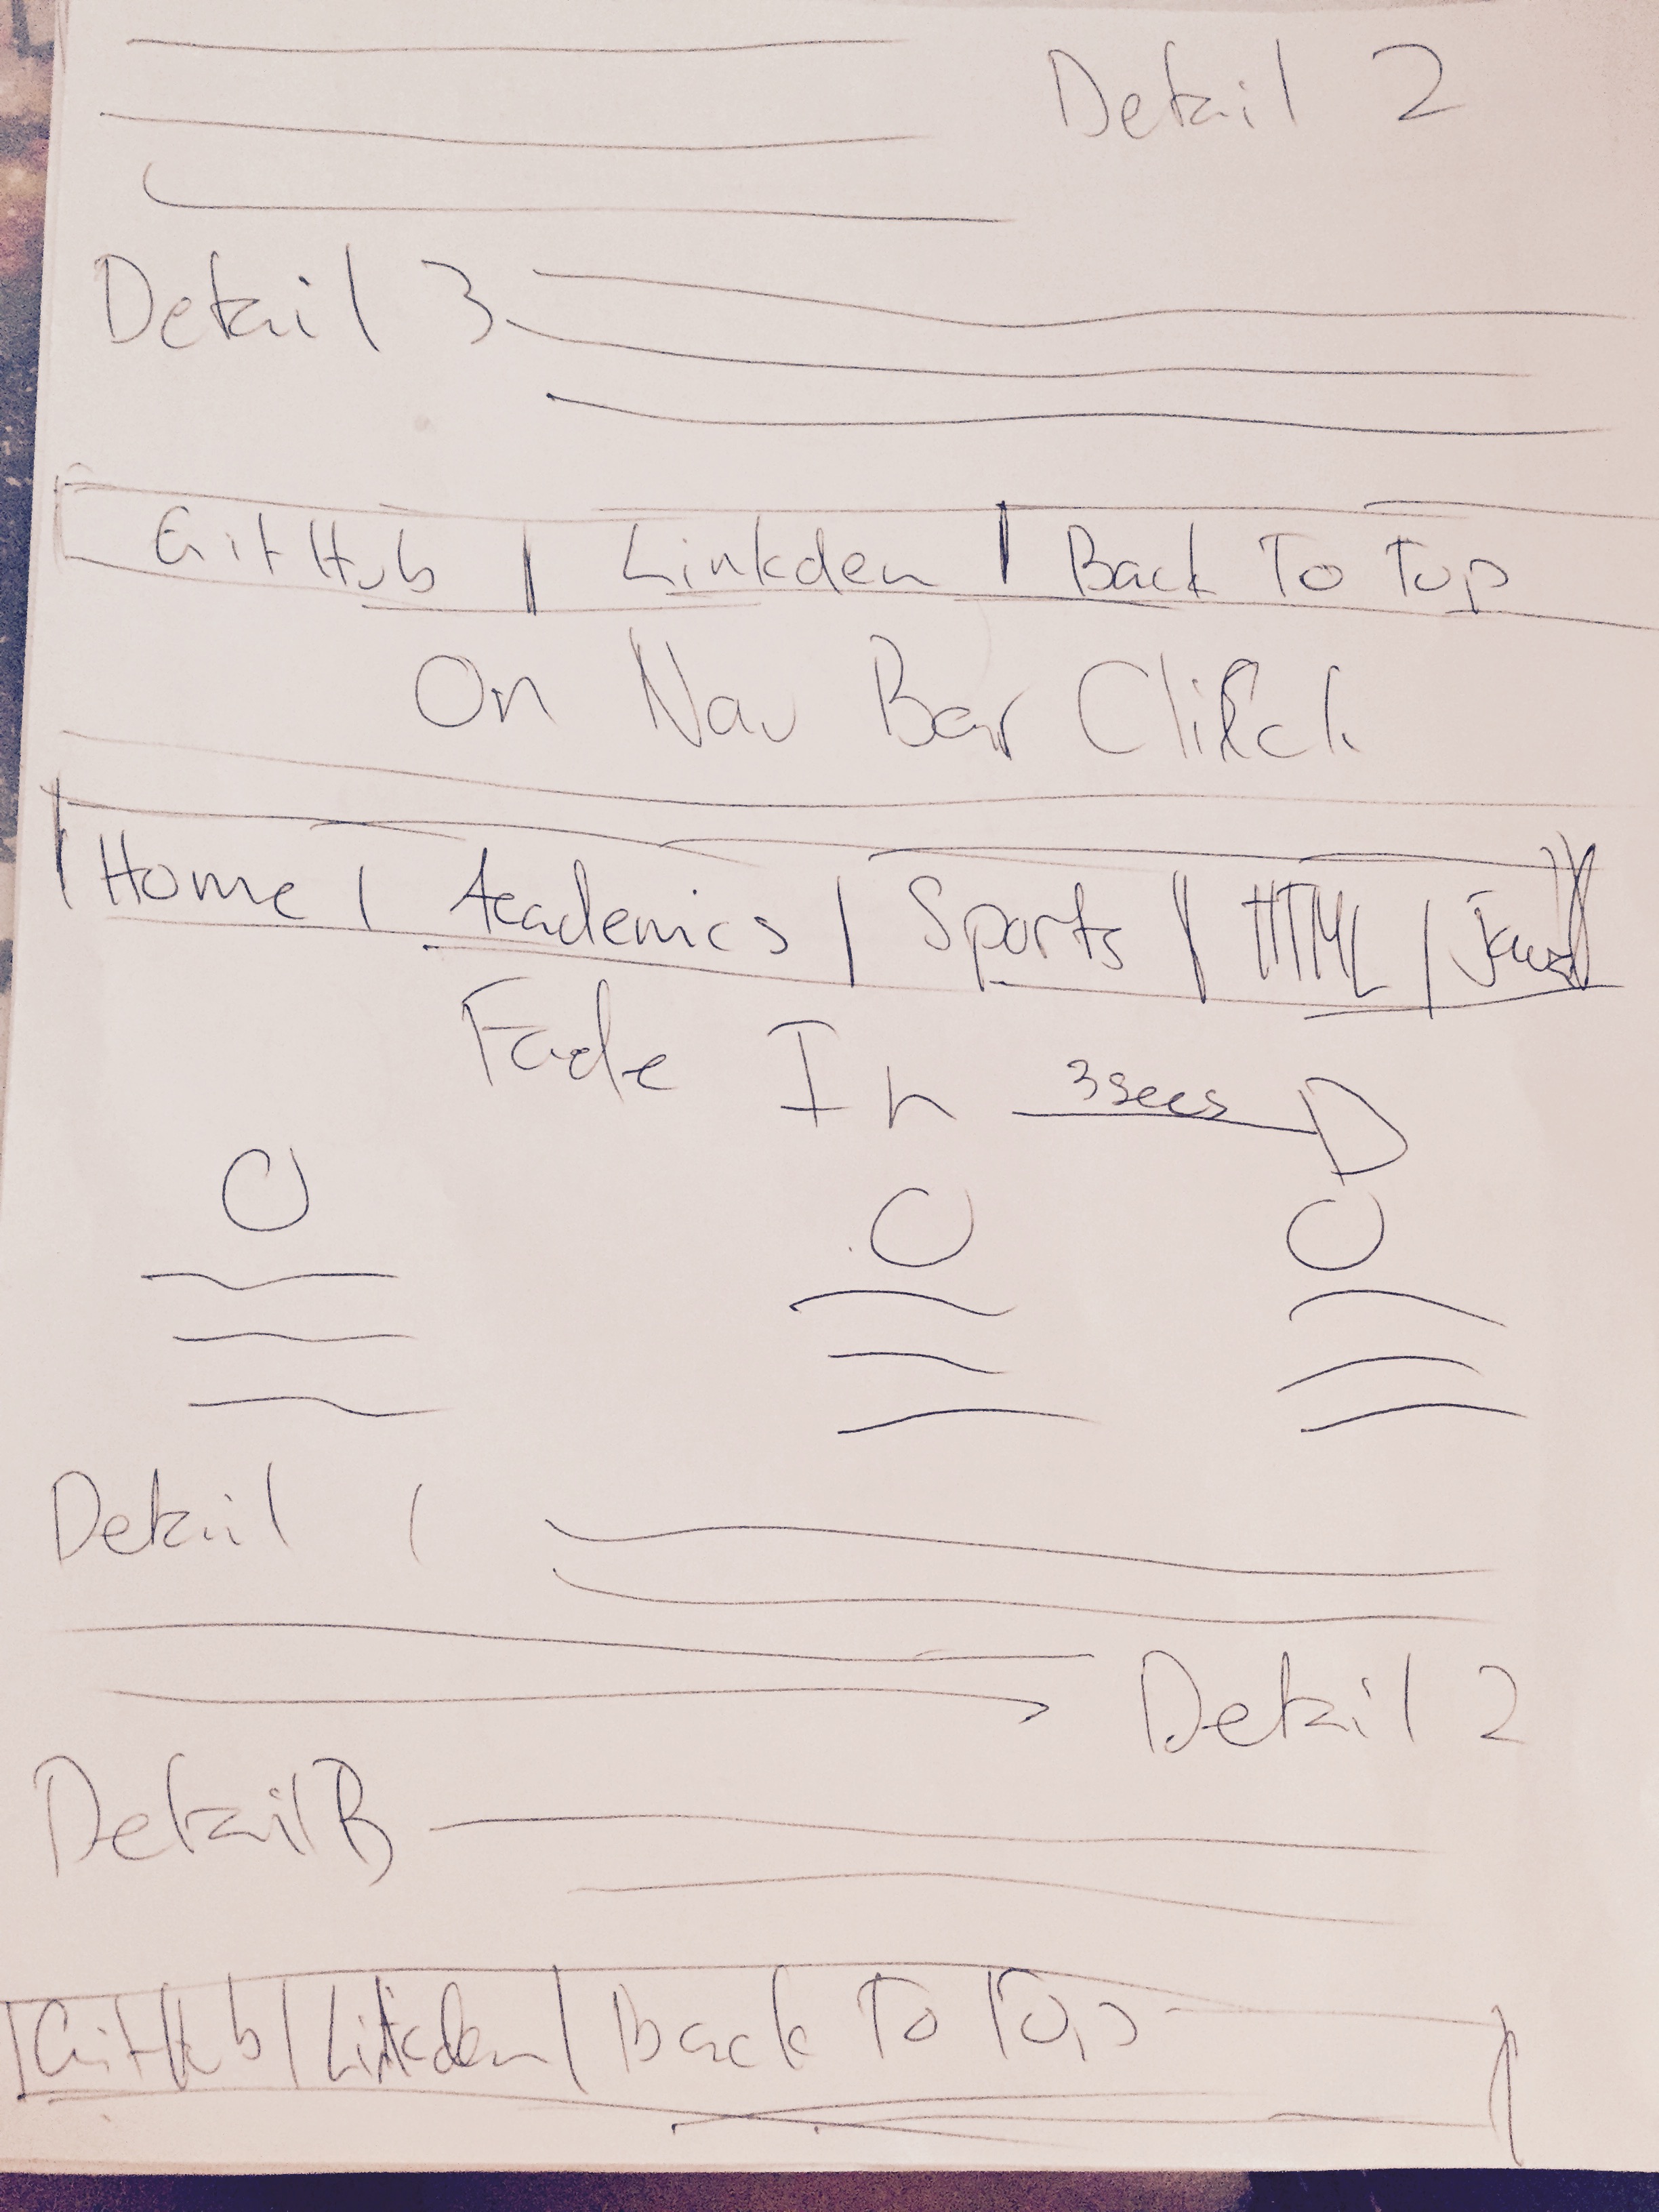 Detail 2
Detail 3
GitHub | Linkden | Back To Top
On Nav Bar Click
Home | Academics | Sports | HTML |
Fade In 3secs
Detail 1
Detail 2
Detail 3
GitHub | Linkden | Back To Top